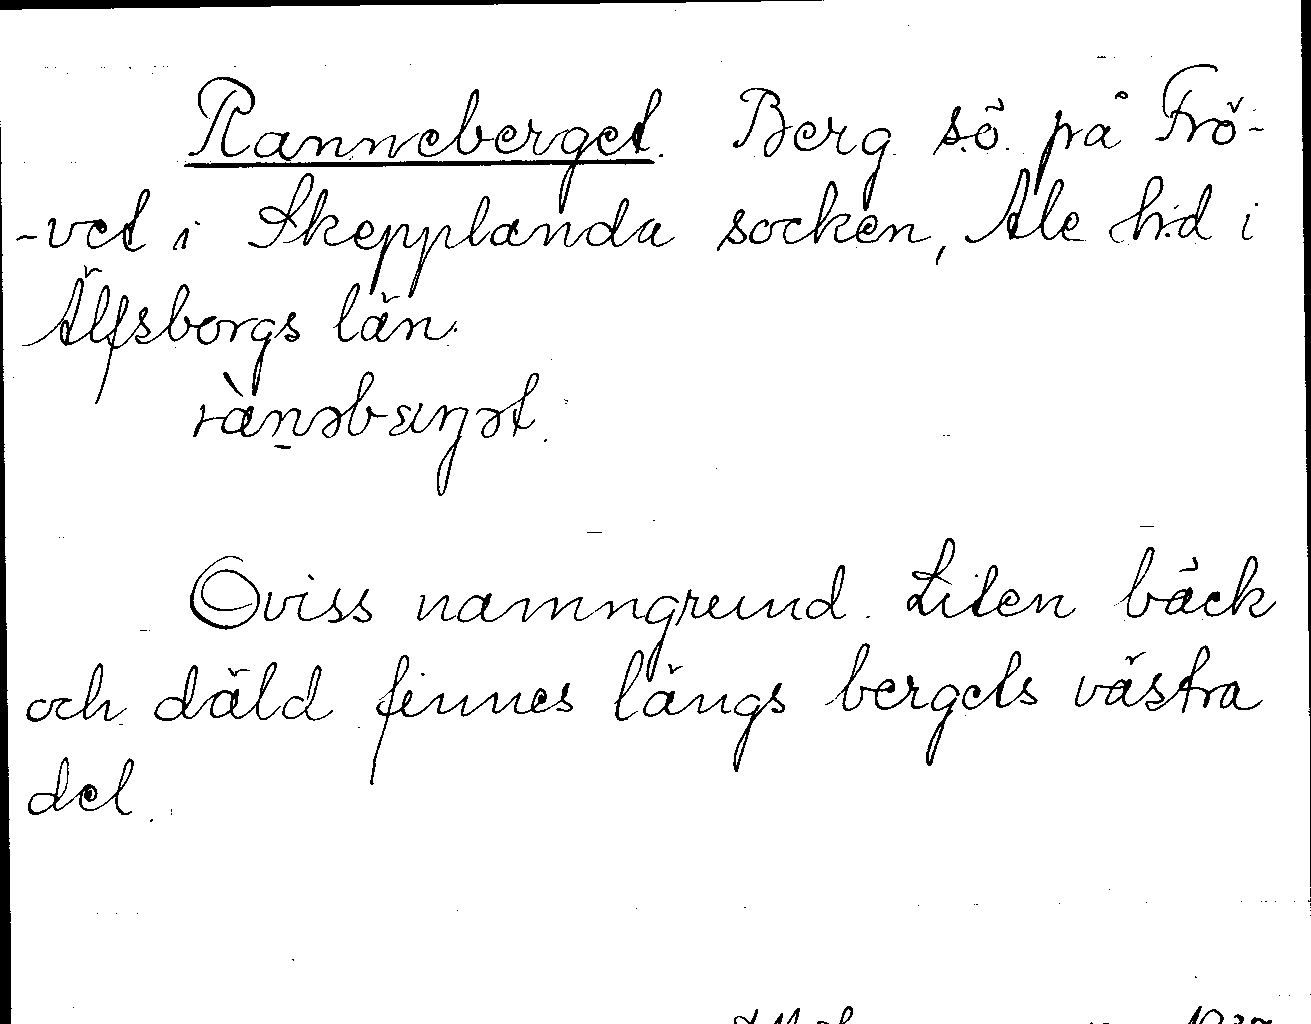 Ranneberget. Berg s.ö. på Frö-
-vet i Skepplanda socken, Ale h:d i
Älfsborgs län.

Oviss namngrund. Liten bäck
och däld finnes längs bergets västra
del.